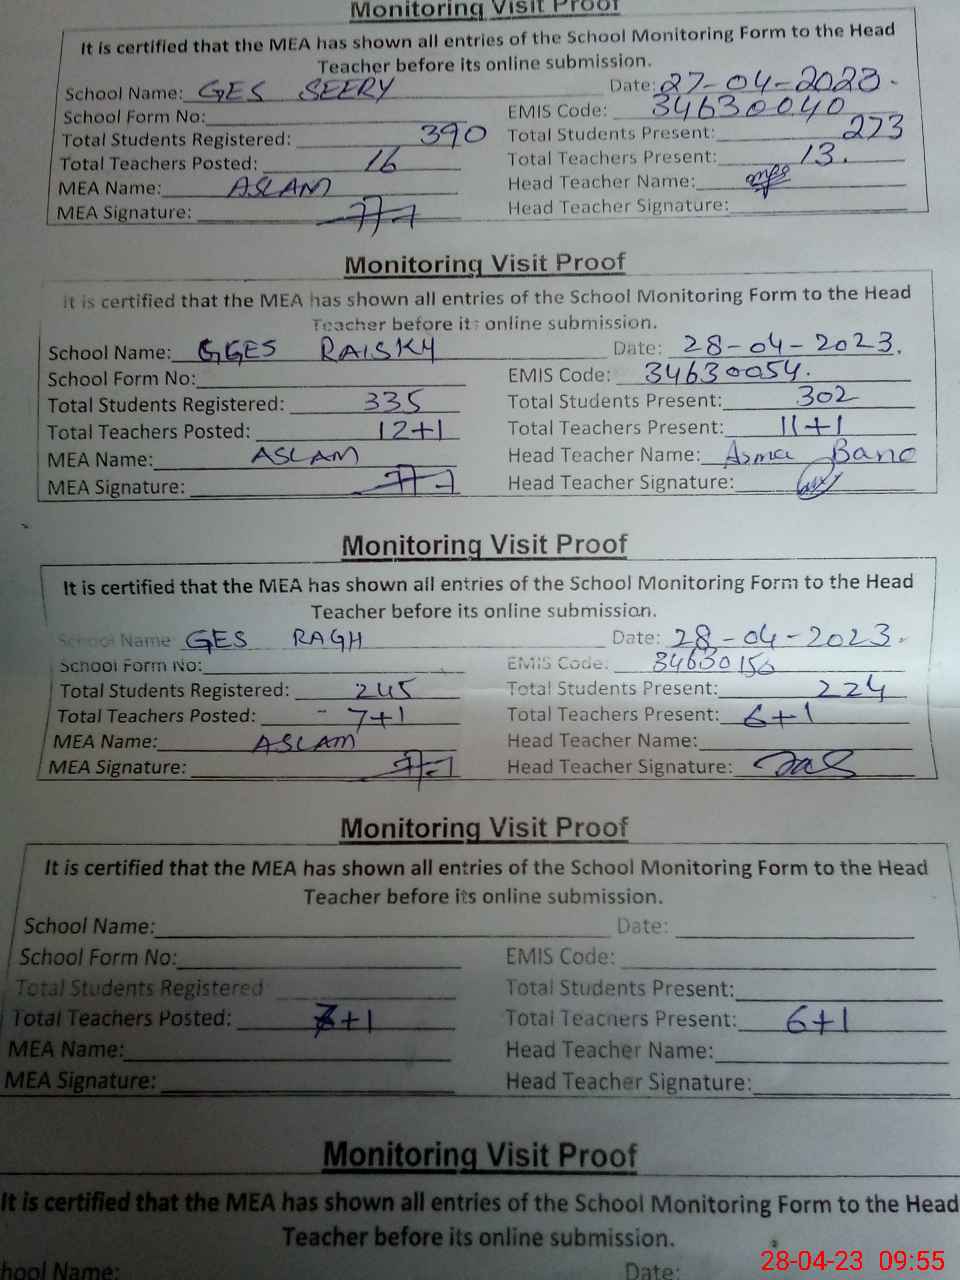 Monitoring Visit Proof
It is certified that the MEA has shown all entries of the School Monitoring Form to the Head
Teacher before its online submission.
School Name: GES SEERY Date: 27-04-2023.
School Form No: EMIS Code: 34630040
Total Students Registered: 390 Total Students Present: 273
Total Teachers Posted: 16 Total Teachers Present: 13.
MEA Name: ASLAM Head Teacher Name:
MEA Signature: Head Teacher Signature:
Monitoring Visit Proof
It is certified that the MEA has shown all entries of the School Monitoring Form to the Head
Teacher before its online submission.
School Name: GGES RAISKY Date: 28-04-2023.
School Form No: EMIS Code: 34630054.
Total Students Registered: 335 Total Students Present: 302
Total Teachers Posted: 12+1 Total Teachers Present: 11+1
MEA Name: ASLAM Head Teacher Name: Asma Bano
MEA Signature: Head Teacher Signature:
Monitoring Visit Proof
It is certified that the MEA has shown all entries of the School Monitoring Form to the Head
Teacher before its online submission.
School Name GES RAGH Date: 28-04-2023.
School Form No: EMIS Code: 34630156
Total Students Registered: 245 Total Students Present: 224
Total Teachers Posted: 7+1 Total Teachers Present: 6+1
MEA Name: ASLAM Head Teacher Name:
MEA Signature: Head Teacher Signature:
Monitoring Visit Proof
It is certified that the MEA has shown all entries of the School Monitoring Form to the Head
Teacher before its online submission.
School Name: Date:
School Form No: EMIS Code:
Total Students Registered Total Students Present:
Total Teachers Posted: +1 Total Teachers Present: 6+1
MEA Name: Head Teacher Name:
MEA Signature: Head Teacher Signature:
Monitoring Visit Proof
It is certified that the MEA has shown all entries of the School Monitoring Form to the Head
Teacher before its online submission.
hool Name: Date:
28-04-23 09:55